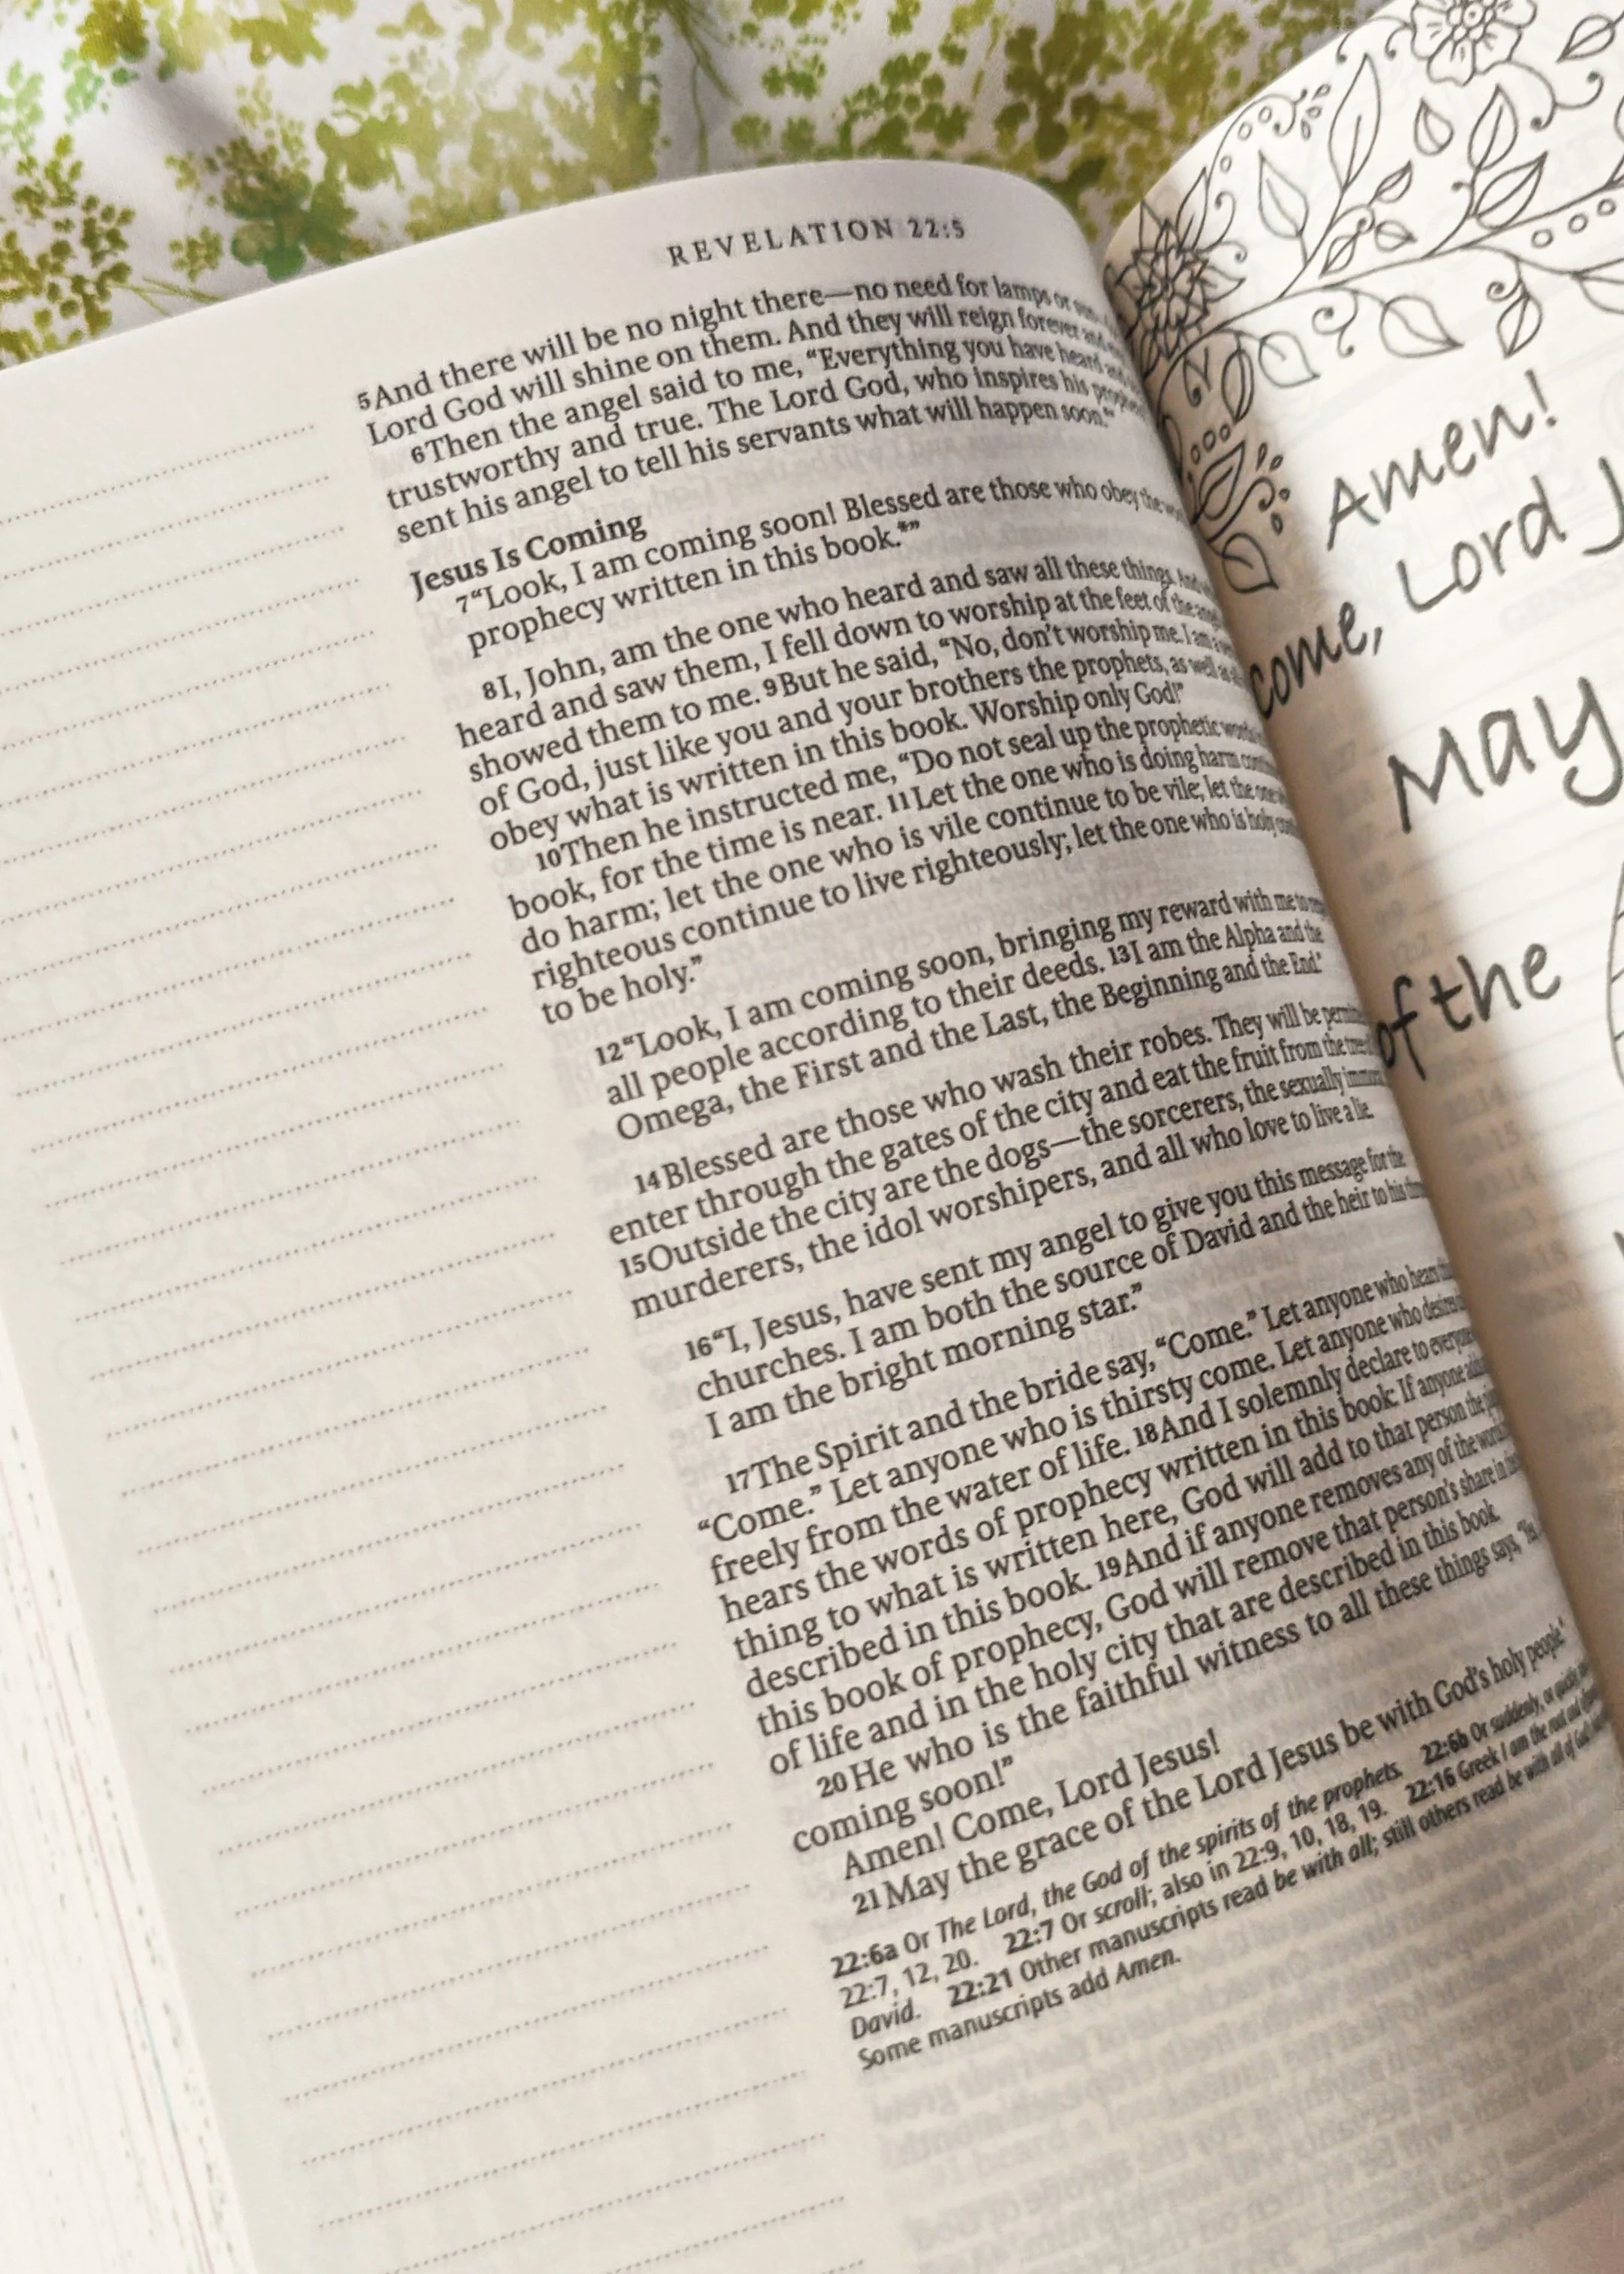 REVELATION 22:5
5And there will be no night there—no need for lamps or
Lord God will shine on them. And they will reign forever and
6Then the angel said to me, “Everything you have heard and
trustworthy and true. The Lord God, who inspires his
sent his angel to tell his servants what will happen soon.*”
Jesus Is Coming
7“Look, I am coming soon! Blessed are those who obey the
prophecy written in this book.*”
8I, John, am the one who heard and saw all these things. And
heard and saw them, I fell down to worship at the feet of the
showed them to me. 9But he said, “No, don’t worship me. I am a
of God, just like you and your brothers the prophets, as well as
obey what is written in this book. Worship only God!”
10Then he instructed me, “Do not seal up the prophetic words
book, for the time is near. 11Let the one who is doing harm
do harm; let the one who is vile continue to be vile; let the one
righteous continue to live righteously; let the one who is holy
to be holy.”
12“Look, I am coming soon, bringing my reward with me to
all people according to their deeds. 13I am the Alpha and the
Omega, the First and the Last, the Beginning and the End.”
14Blessed are those who wash their robes. They will be
enter through the gates of the city and eat the fruit from the
15Outside the city are the dogs—the sorcerers, the sexually
murderers, the idol worshipers, and all who love to live a lie.
16“I, Jesus, have sent my angel to give you this message for the
churches. I am both the source of David and the heir to his
I am the bright morning star.”
17The Spirit and the bride say, “Come.” Let anyone who hears
“Come.” Let anyone who is thirsty come. Let anyone who desires
freely from the water of life. 18And I solemnly declare to
hears the words of prophecy written in this book: If anyone
thing to what is written here, God will add to that person the
described in this book. 19And if anyone removes any of the words
this book of prophecy, God will remove that person’s share in
of life and in the holy city that are described in this book.
20He who is the faithful witness to all these things says,
coming soon!”
Amen! Come, Lord Jesus!
21May the grace of the Lord Jesus be with God’s holy people.*
22:6a Or The Lord, the God of the spirits of the prophets. 22:6b Or suddenly, or quickly;
22:7, 12, 20. 22:7 Or scroll; also in 22:9, 10, 18, 19. 22:16 Greek I am the root and
David. 22:21 Other manuscripts read be with all; still others read be with all of God’s
Some manuscripts add Amen.
Amen!
come, Lord J
May
of the